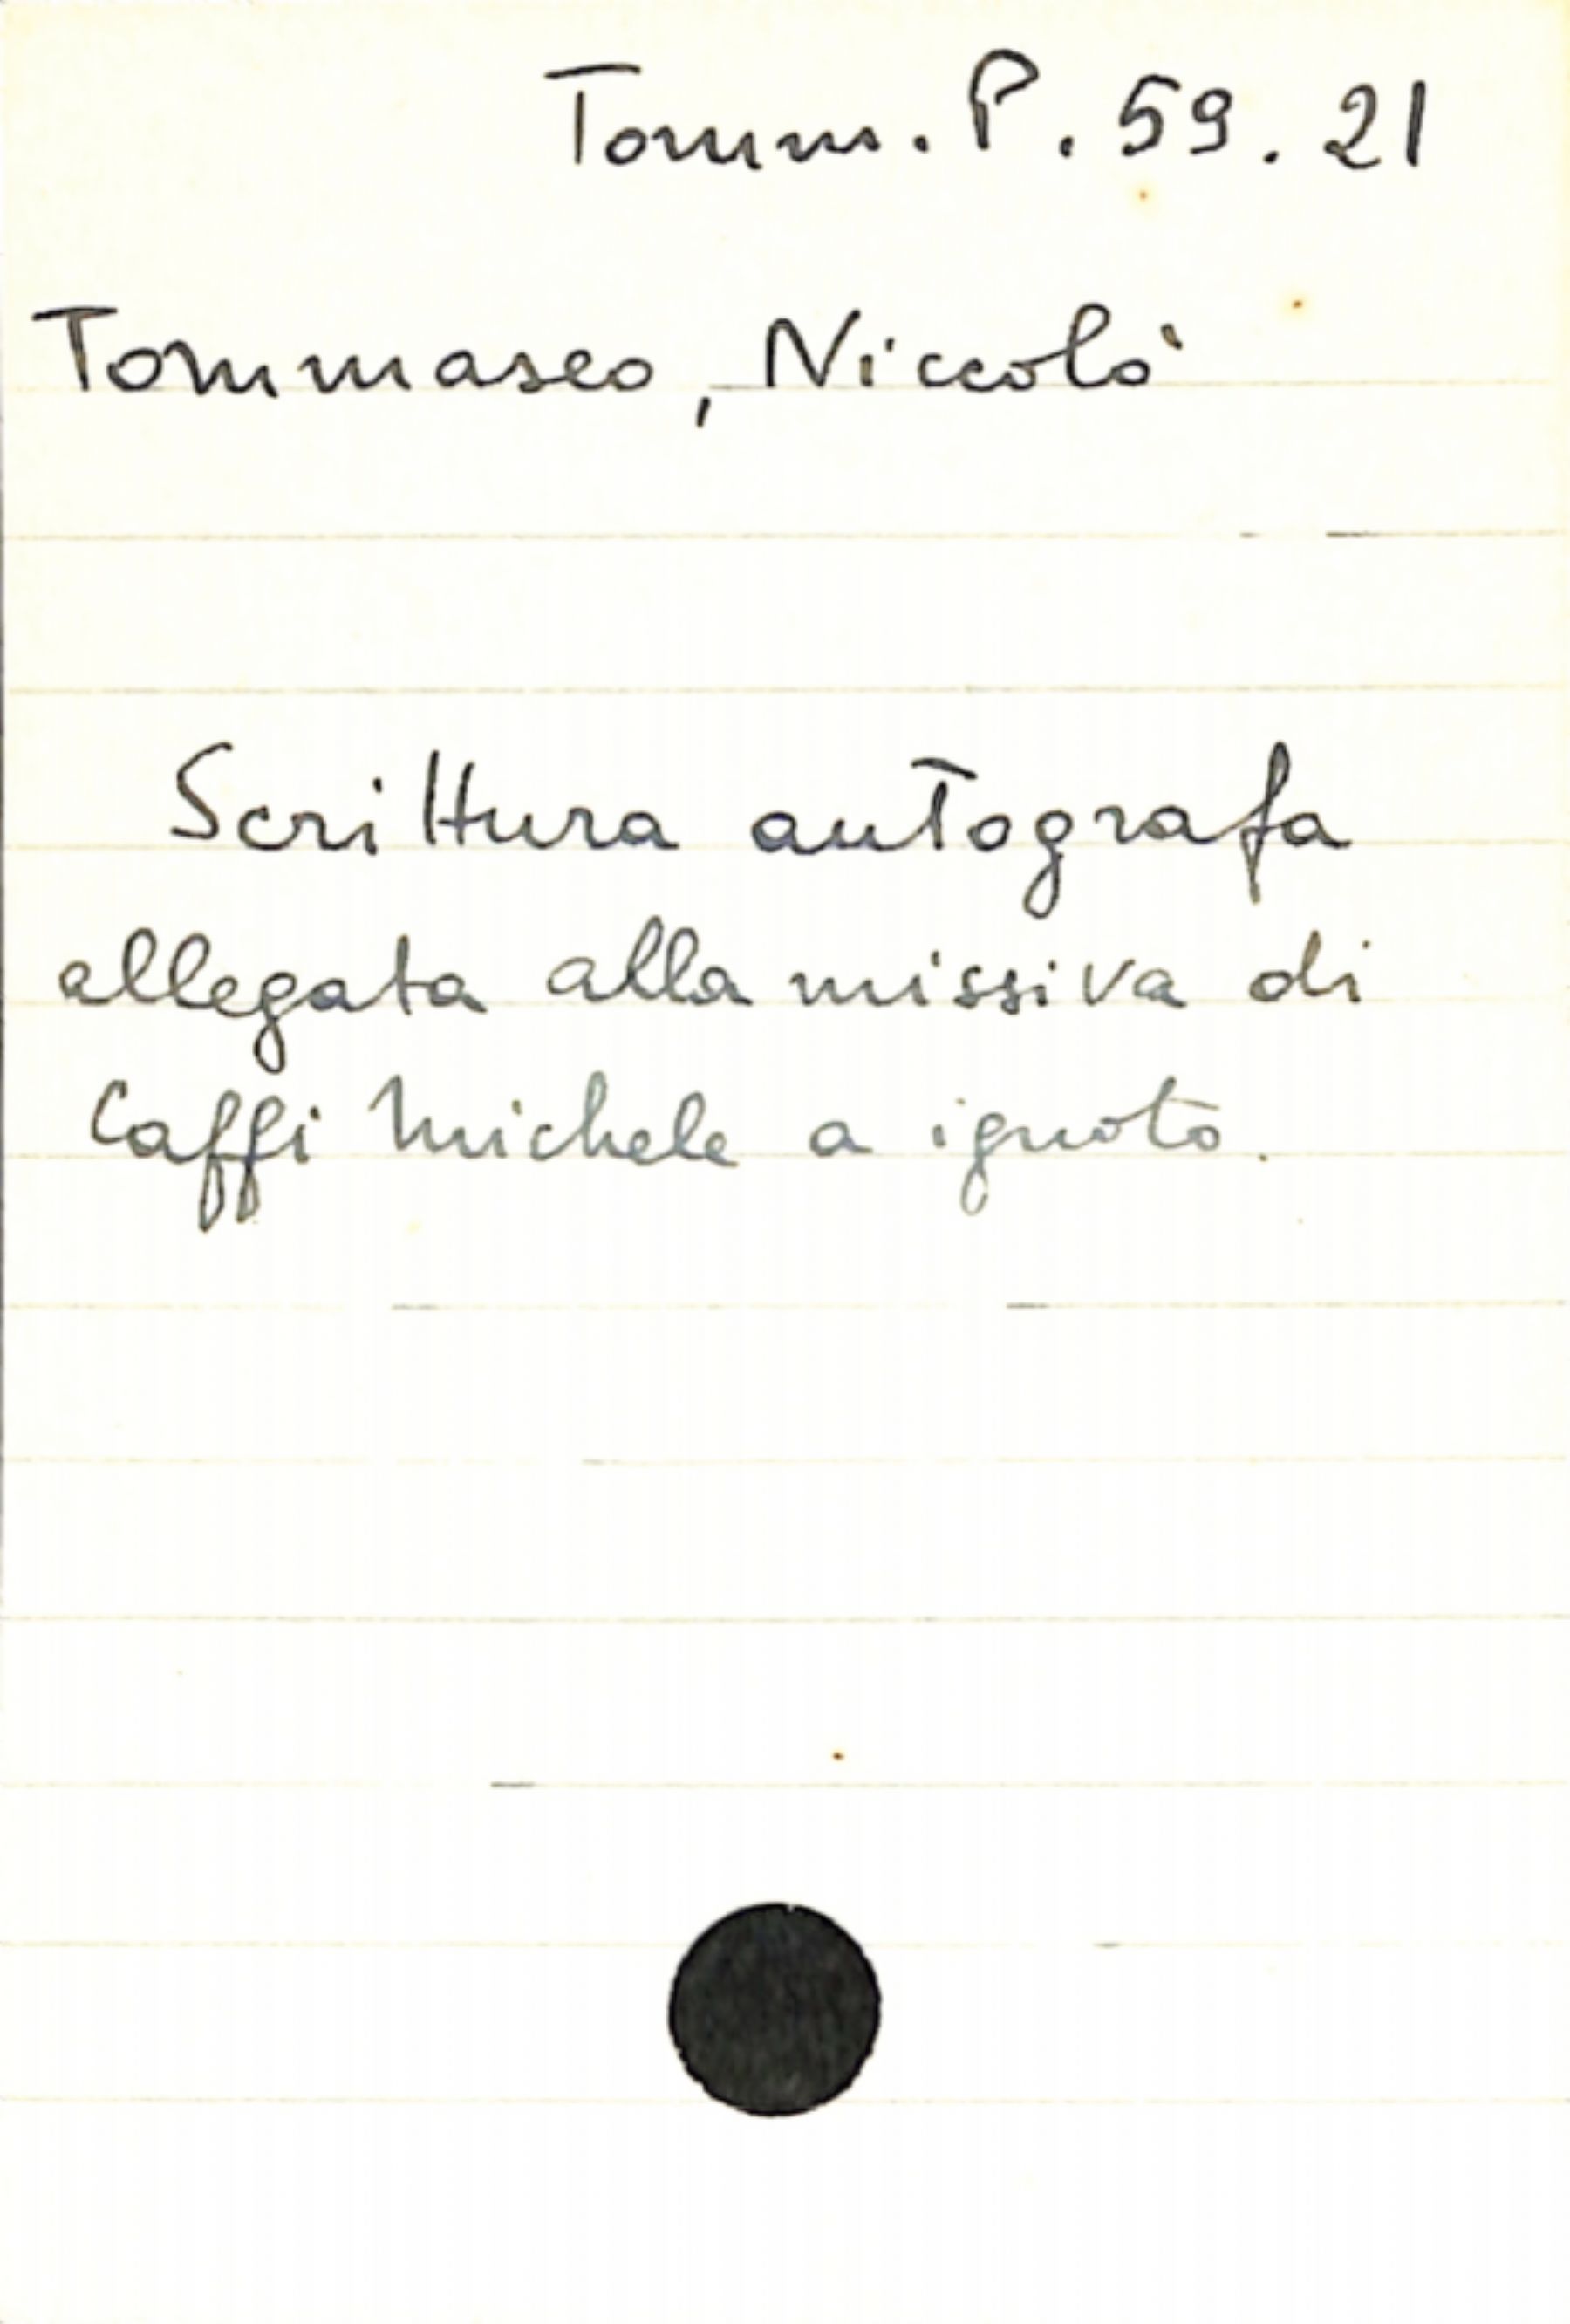 Tomm. P. 59. 21
Tommaseo, Niccolò
Scrittura autografa
allegata alla missiva di
Caffi Michele a ignoto.